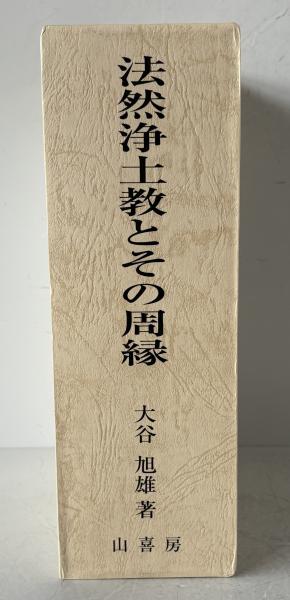 法然浄土教とその周縁
大谷 旭雄 著
山喜房